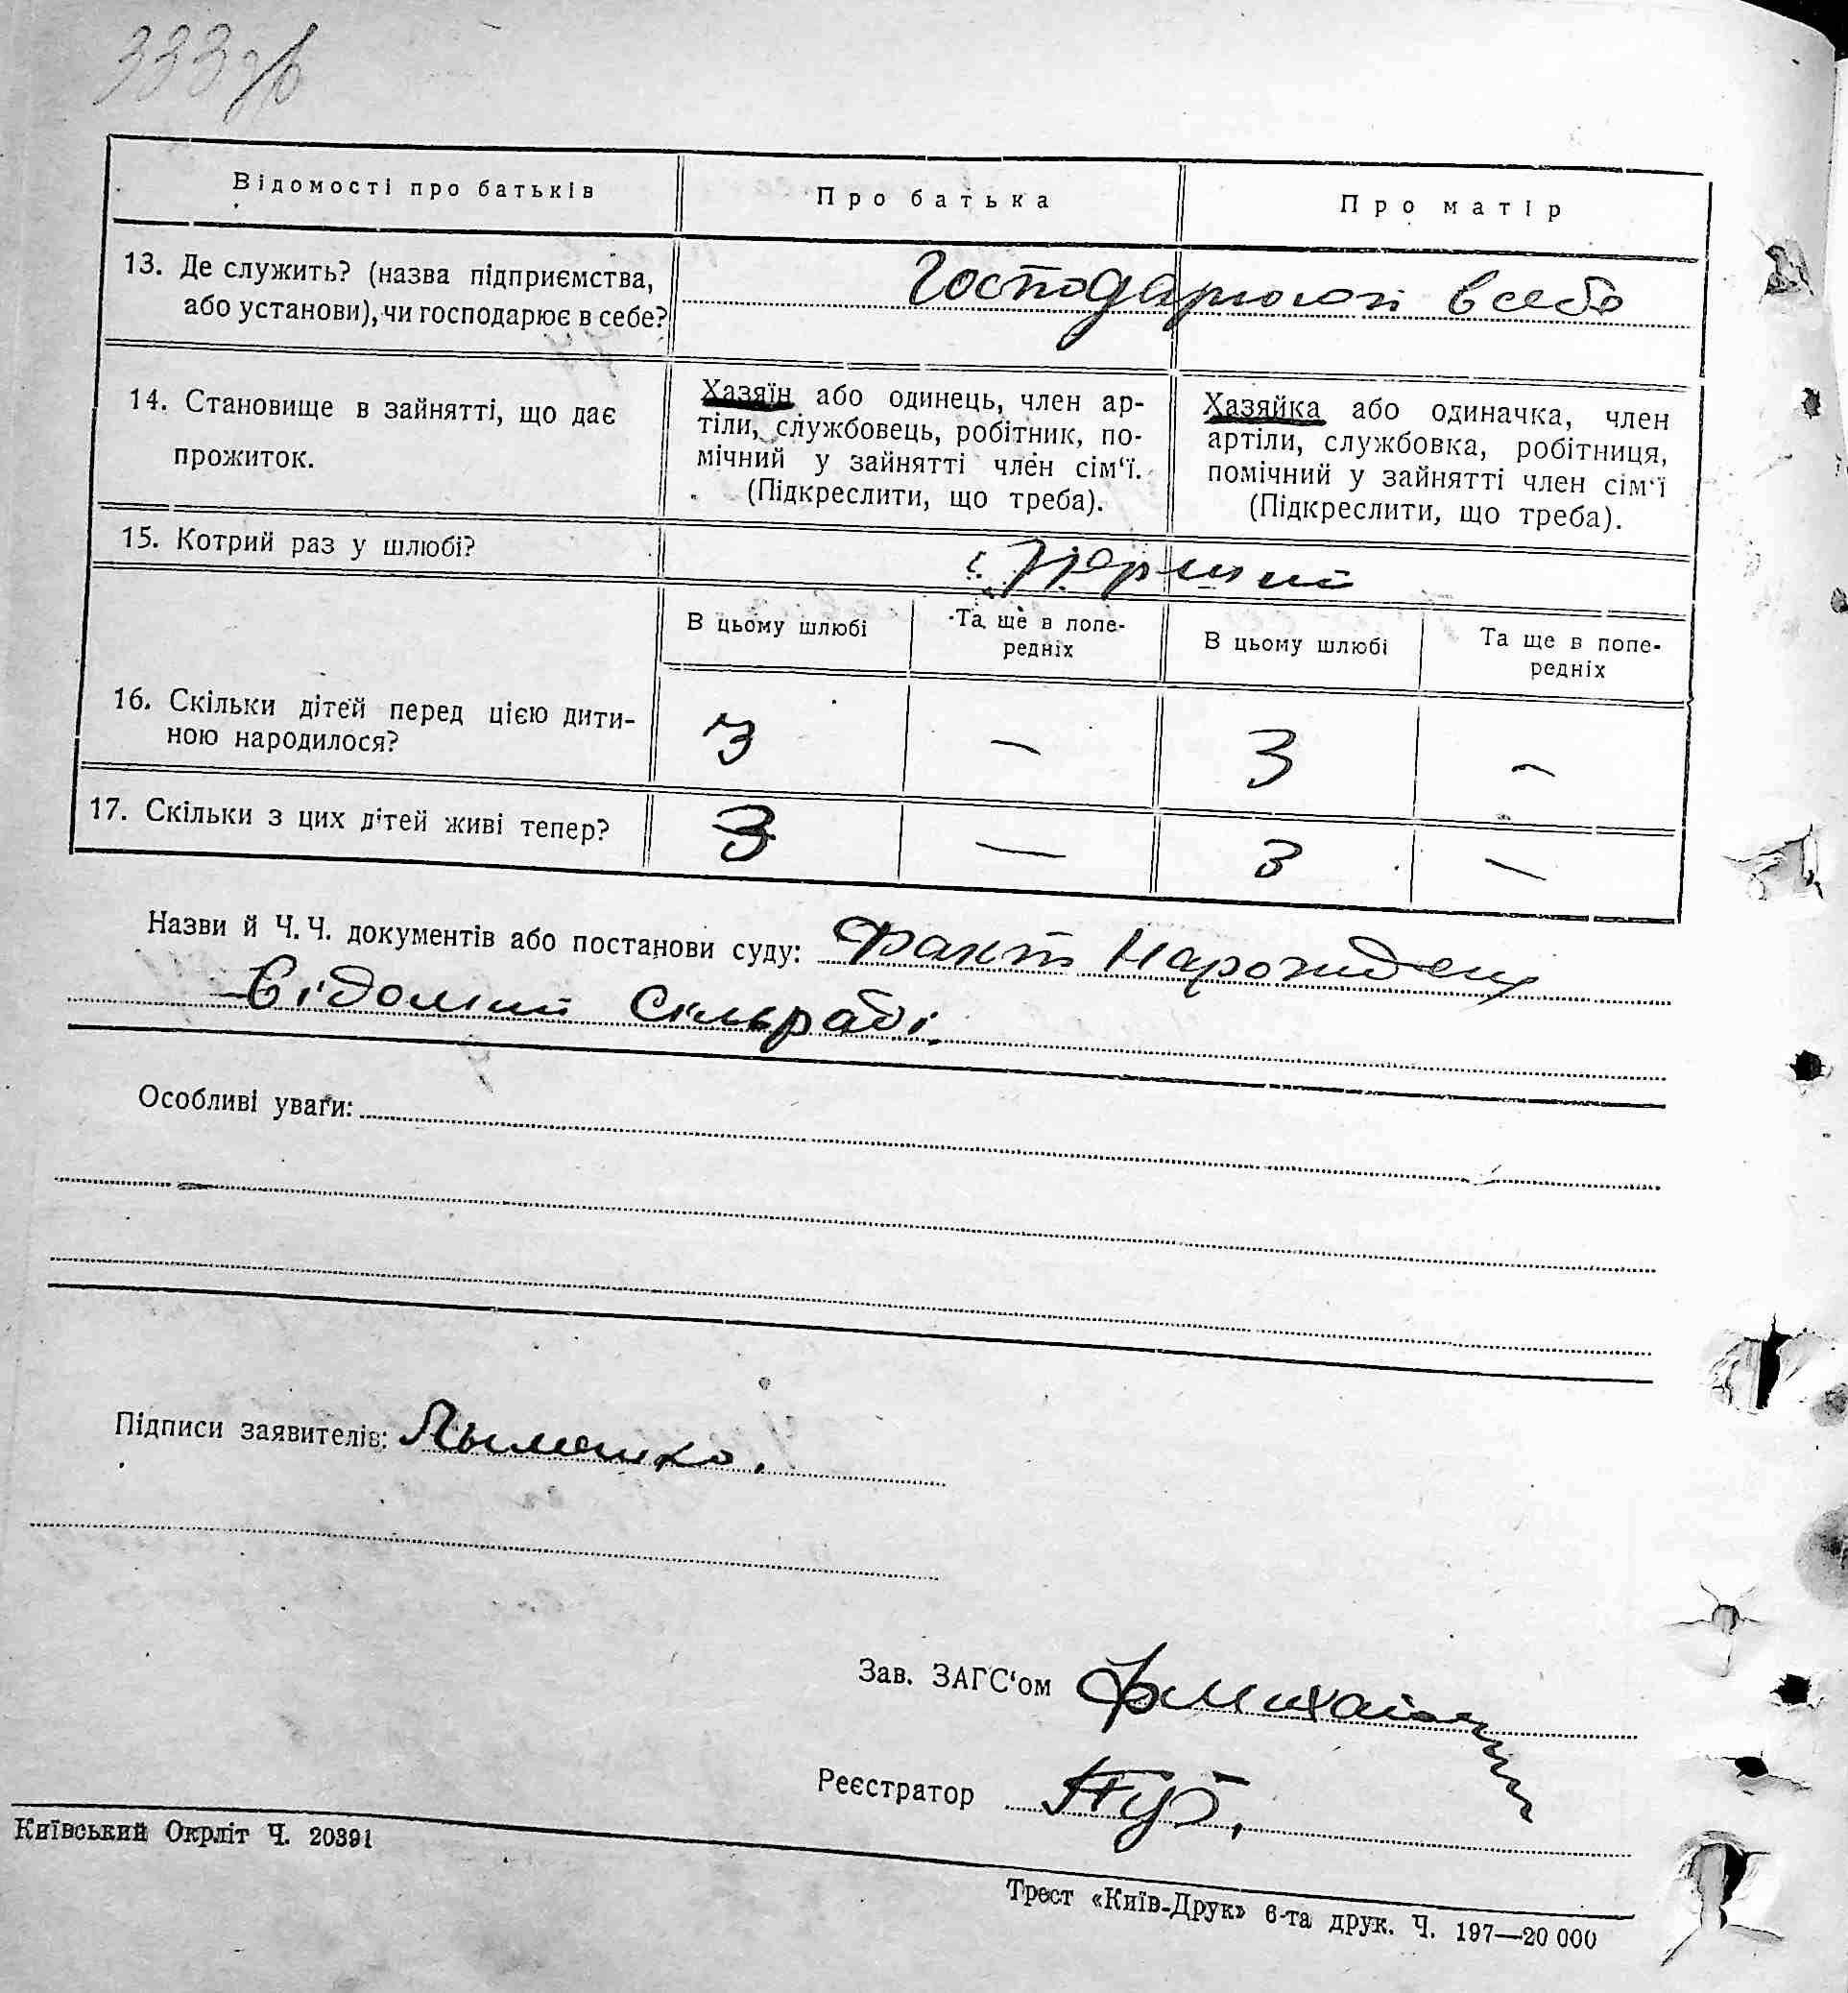 333 зв
Відомості про батьків
Про батька
Про матір
13. Де служить? (назва підприємства,
або установи), чи господарює в себе?
Господарюють в себе
14. Становище в зайнятті, що дає
прожиток.
Хазяїн або одинець, член ар-
тіли, службовець, робітник, по-
мічний у зайнятті член сім'ї.
(Підкреслити, що треба).
Хазяйка або одиначка, член
артіли, службовка, робітниця,
помічний у зайнятті член сім'ї
(Підкреслити, що треба).
15. Котрий раз у шлюбі?
Перший
В цьому шлюбі
Та ще в попе-
редніх
В цьому шлюбі
Та ще в попе-
редніх
16. Скільки дітей перед цією дити-
ною народилося?
3 — 3 —
17. Скільки з цих дітей живі тепер?
3 — 3 —
Назви й Ч. Ч. документів або постанови суду: Факт Нарождену
Відомий Сільраді.
Особливі уваги:
Підписи заявителів:
Зав. ЗАГС'ом
Реєстратор
Київський Окрліт Ч. 20391
Трест «Київ-Друк» 6-та друк. Ч. 197—20 000